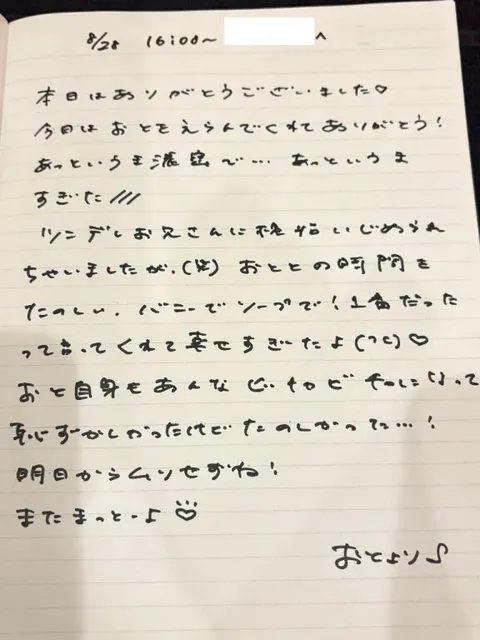 8/28 16:00〜 へ
本日はありがとうございました♡
今日はおとをえらんでくれてありがとう!
あっというま濃密で… あっというま
すぎた///
ツンデレお兄さんに いじめられ
ちゃいましたが、(笑) おととの時間を
たのしい、バニーでソープで!1番だった
って言ってくれて幸せすぎたよ( )♡
おと自身もあんな になって
恥ずかしかったけどたのしかった…!
明日からムリせずね!
またまっとーよ♡
おとより♪